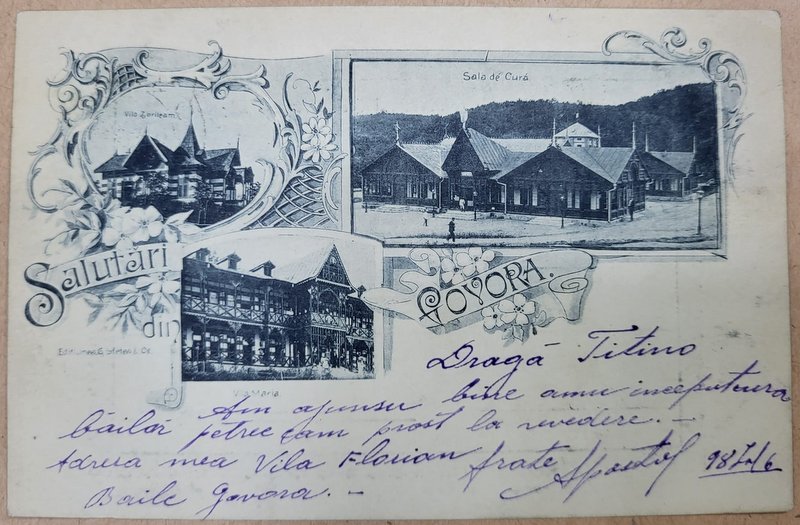 Sala de Cură
Salutări
din
GOVORA.
Vila Maria.
Dragă Titino
Am ajunsu bine amu inceputu
băilor petrec cam prost la revedere. –
Adresa mea Vila Florian frate Apostol 98
Baile Govora. –